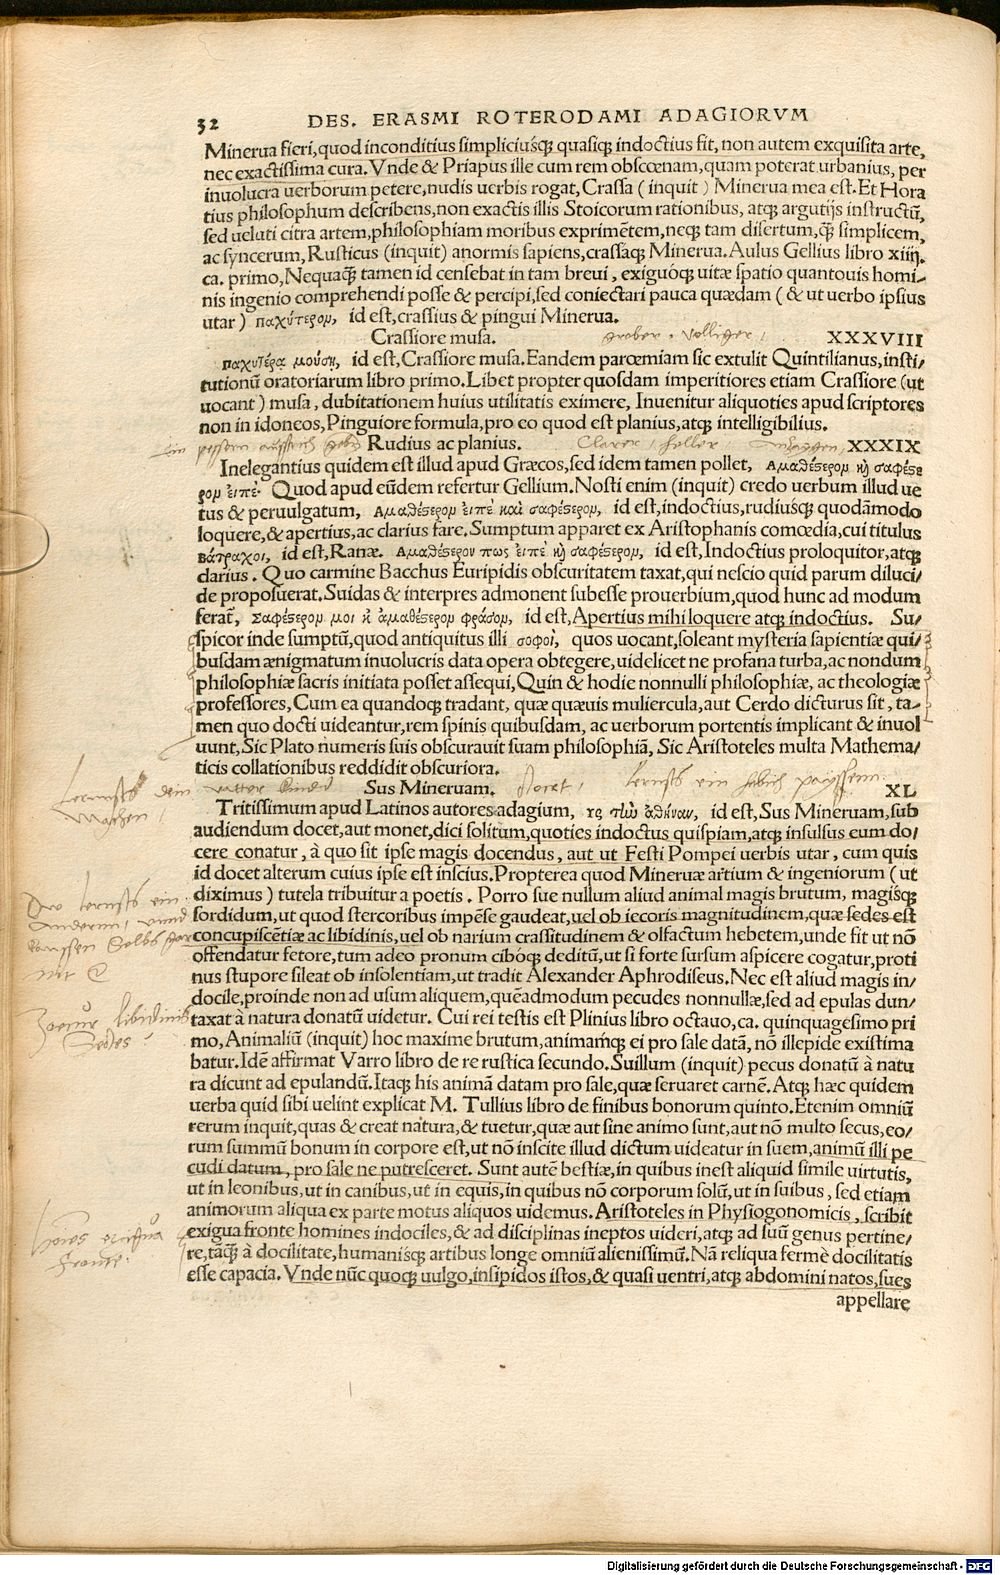 32 DES. ERASMI ROTERODAMI ADAGIORVM
Minerua fieri, quod inconditius simpliciusq́ꝫ quasiqꝫ indoctius fit, non autem exquisita arte,
nec exactissima cura. Vnde & Priapus ille cum rem obscœnam, quam poterat urbanius, per
inuolucra uerborum petere, nudis uerbis rogat, Crassa (inquit) Minerua mea est. Et Hora
tius philosophum describens, non exactis illis Stoicorum rationibus, atqꝫ argutijs instructũ,
sed ueluti citra artem, philosophiam moribus exprimẽtem, neqꝫ tam disertum, q̃ꝫ simplicem,
ac syncerum, Rusticus (inquit) anormis sapiens, crassáqꝫ Minerua. Aulus Gellius libro xiiij.
ca. primo, Nequaq̃ꝫ tamen id censebat in tam breui, exiguóqꝫ uitæ spatio quantouis homi⸗
nis ingenio comprehendi posse & percipi, sed coniectari pauca quædam (& ut uerbo ipsius
utar) παχύτερομ, id est, crassius & pingui Minerua.
Crassiore musa. grober. XXXVIII
παχυτέρᾳ μούσῃ, id est, Crassiore musa. Eandem parœmiam sic extulit Quintilianus, insti⸗
tutionũ oratoriarum libro primo. Libet propter quosdam imperitiores etiam Crassiore (ut
uocant) musa, dubitationem huius utilitatis eximere, Inuenitur aliquoties apud scriptores
non in idoneos, Pinguiore formula, pro eo quod est planius, atqꝫ intelligibilius.
Rudius ac planius. Clarer / heller / XXXIX
Inelegantius quidem est illud apud Græcos, sed idem tamen pollet, Αμαθέςερομ κὴ σαφέςε
ρομ ἐιπέ. Quod apud eũdem refertur Gellium. Nosti enim (inquit) credo uerbum illud ue
tus & peruulgatum, Αμαθέςερομ ἐιπὲ καὶ σαφέςερομ, id est, indoctius, rudiusq́ꝫ quodãmodo
loquere, & apertius, ac clarius fare. Sumptum apparet ex Aristophanis comœdia, cui titulus
Βάτραχοι, id est, Ranæ. Αμαθέςερον πως ἐιπὲ κὴ σαφέςερομ, id est, Indoctius proloquitor, atqꝫ
clarius. Quo carmine Bacchus Euripidis obscuritatem taxat, qui nescio quid parum diluci⸗
de proposuerat. Suidas & interpres admonent subesse prouerbium, quod hunc ad modum
ferat̃, Σαφέςερομ μοι κὶ ἀμαθέςερομ φράσομ, id est, Apertius mihi loquere atqꝫ indoctius. Su⸗
spicor inde sumptũ, quod antiquitus illi σοφοὶ, quos uocant, soleant mysteria sapientiæ qui⸗
busdam ænigmatum inuolucris data opera obtegere, uidelicet ne profana turba, ac nondum
philosophiæ sacris initiata posset assequi, Quin & hodie nonnulli philosophiæ, ac theologiæ
professores, Cum ea quandoqꝫ tradant, quæ quæuis muliercula, aut Cerdo dicturus sit, ta⸗
men quo docti uideantur, rem spinis quibusdam, ac uerborum portentis implicant & inuol
uunt, Sic Plato numeris suis obscurauit suam philosophiã, Sic Aristoteles multa Mathema⸗
ticis collationibus reddidit obscuriora.
Sus Mineruam. XL
Tritissimum apud Latinos autores adagium, ὗς τὴν ἀθηναν, id est, Sus Mineruam, sub
audiendum docet, aut monet, dici solitum, quoties indoctus quispiam, atqꝫ insulsus eum do⸗
cere conatur, à quo sit ipse magis docendus, aut ut Festi Pompei uerbis utar, cum quis
id docet alterum cuius ipse est inscius. Propterea quod Mineruæ artium & ingeniorum (ut
diximus) tutela tribuitur a poetis. Porro sue nullum aliud animal magis brutum, magisq́ꝫ
sordidum, ut quod stercoribus impẽse gaudeat, uel ob iecoris magnitudinem, quæ sedes est
concupiscẽtiæ ac libidinis, uel ob narium crassitudinem & olfactum hebetem, unde fit ut nõ
offendatur fetore, tum adeo pronum cibóqꝫ deditũ, ut si forte sursum aspicere cogatur, proti
nus stupore sileat ob insolentiam, ut tradit Alexander Aphrodiseus. Nec est aliud magis in⸗
docile, proinde non ad usum aliquem, quẽadmodum pecudes nonnullæ, sed ad epulas dun⸗
taxat à natura donatũ uidetur. Cui rei testis est Plinius libro octauo, ca. quinquagesimo pri
mo, Animaliũ (inquit) hoc maxime brutum, animamq́ꝫ ei pro sale datã, nõ illepide existima
batur. Idẽ affirmat Varro libro de re rustica secundo. Suillum (inquit) pecus donatũ à natu
ra dicunt ad epulandũ. Itaqꝫ his animã datam pro sale, quæ seruaret carnẽ. Atqꝫ hæc quidem
uerba quid sibi uelint explicat M. Tullius libro de finibus bonorum quinto. Etenim omniũ
rerum inquit, quas & creat natura, & tuetur, quæ aut sine animo sunt, aut nõ multo secus, eo⸗
rum summũ bonum in corpore est, ut nõ inscite illud dictum uideatur in suem, animũ illi pe
cudi datum, pro sale ne putresceret. Sunt autẽ bestiæ, in quibus inest aliquid simile uirtutis,
ut in leonibus, ut in canibus, ut in equis, in quibus nõ corporum solũ, ut in suibus, sed etiam
animorum aliqua ex parte motus aliquos uidemus. Aristoteles in Physiogonomicis, scribit
exigua fronte homines indociles, & ad disciplinas ineptos uideri, atqꝫ ad suũ genus pertine⸗
re, tãq̃ꝫ à docilitate, humanisq́ꝫ artibus longe omniũ alienissimũ. Nã reliqua fermè docilitatis
esse capacia. Vnde nũc quoqꝫ uulgo, insipidos istos, & quasi uentri, atqꝫ abdomini natos, sues
appellare
Jaecur libidinis
Sedes
Digitalisierung gefördert durch die Deutsche Forschungsgemeinschaft - DFG